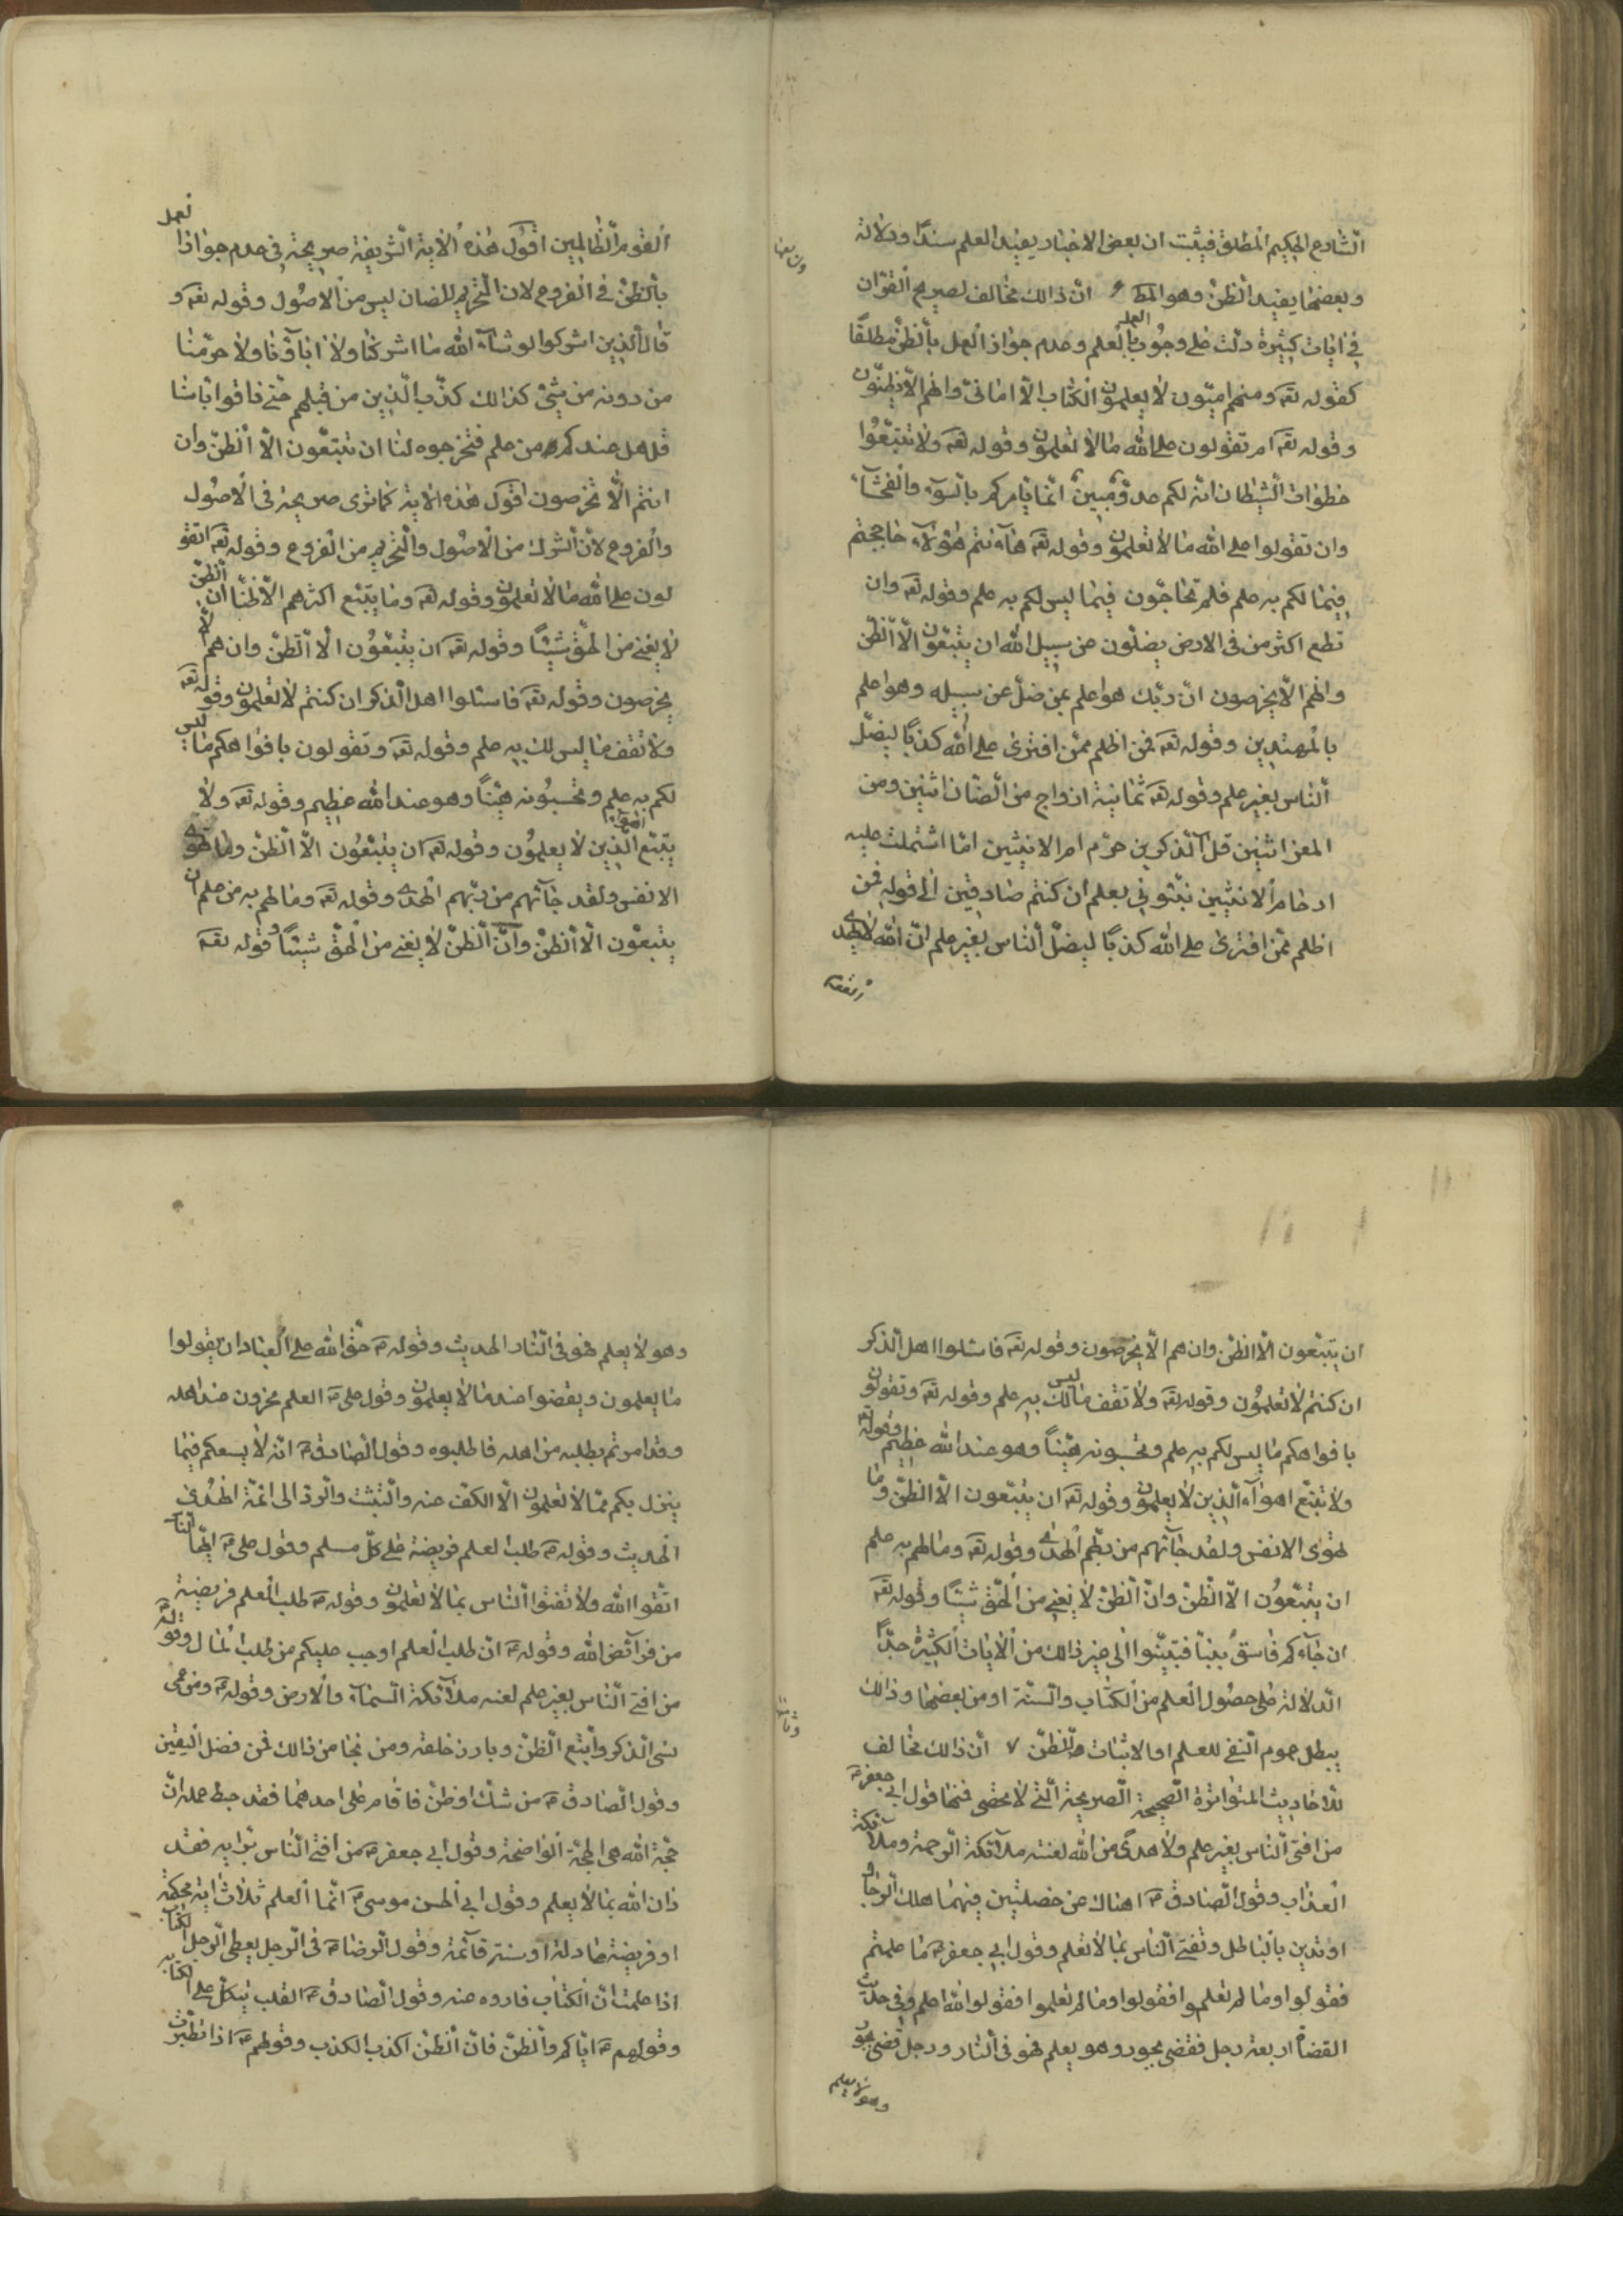 الشارع الحكيم المطلق فيثبت ان بعض الاخبار يفيد العلم سندًا ودلالة
وبعضها يفيد الظنّ وهو المط ۶ انّ ذالك مخالف لصريح القرآن
في ايات كثيرة دلّت على وجُوب العمل بالعلم وعدم جواز العمل بالظنّ مطلقًا
كقوله تعه ومنهم امّيّون لا يعلمون الكتاب الّا امانيّ وانهم الّا يظنّون
وقوله تعه ام تقولون على الله ما لا تعلمون وقوله تعه ولا تتّبعُوا
خطوات الشيطان انّه لكم عدوّ مبين انّما يأمركم بالسّوء والفحشآء
وان تقولوا على الله ما لا تعلمون وقوله تعه هآ انتم هؤلآء حاججتم
فيما لكم به علم فلم تحاجّون فيما ليس لكم به علم وقوله تعه وان
تطع اكثر من في الارض يضلّون عن سبيل الله ان يتّبعون الّا الظنّ
وانهم الّا يخرصون انّ ربّك هو اعلم بمن ضلّ عن سبيله وهو اعلم
بالمهتدين وقوله تعه فمن اظلم ممّن افترى على الله كذبًا ليضلّ
الناس بغير علم وقوله تعه ثمانية ازواج من الضّان اثنين ومن
المعز اثنين قل آلذكرين حرّم ام الانثيين امّا اشتملت عليه
ارحام الانثيين نبّئوني بعلم ان كنتم صادقين الى قوله فمن
اظلم ممّن افترى على الله كذبًا ليضلّ الناس بغير علم انّ الله لا يهدي
القوم
القوم الظّالمين اقول هذه الاية الشريفة صريحة في عدم جواز العمل
بالظنّ في الفروع لان التحريم للضان ليس من الاصُول وقوله تعه و
قال الّذين اشركوا لو شآء الله ما اشركنا ولا اباؤنا ولا حرّمنا
من دونه من شئ كذالك كذّب الّذين من قبلهم حتى ذاقوا باسنا
قل هل عندكم من علم فتخرجوه لنا ان تتّبعون الّا الظنّ وان
انتم الّا تخرصون اقول هذه الاية كما ترى صريحة في الاصُول
والفروع لانّ الشرك من الاصُول والتحريم من الفروع وقوله تعه اتقو
لون على الله ما لا تعلمون وقوله تعه وما يتّبع اكثرهم الّا ظنّا انّ الظنّ
لا يغني من الحقّ شيئًا وقوله تعه ان يتّبعُون الّا الظنّ وان هم الّا
يخرصون وقوله تعه فاسئلوا اهل الذكر ان كنتم لا تعلمون وقوله تعه
ولا تقف ما ليس لك به علم وقوله تعه وتقولون بافواهكم ما ليس
لكم به علم وتحسبُونه هيّنًا وهو عند الله عظيم وقوله تعه ولا
يتّبع اهوآء الّذين لا يعلمُون وقوله تعه ان يتّبعُون الّا الظنّ وما تهوى
الانفس ولقد جآئهم من ربّهم الهدى وقوله تعه وما لهم به من علم ان
يتبعُون الّا الظنّ وانّ الظنّ لا يغني من الحقّ شيئًا وقوله تعه
ان يتّبعون الّا الظنّ وان هم الّا يخرصون وقوله تعه فاسئلوا اهل الذكر
ان كنتم لا تعلمُون وقوله تعه ولا تقف ما ليس لك به علم وقوله تعه وتقولون
بافواهكم ما ليس لكم به علم وتحسبونه هيّنًا وهو عند الله عظيم وقوله تعه
ولا تتّبع اهوآء الّذين لا يعلمون وقوله تعه ان يتّبعون الّا الظنّ وما
تهوى الانفس ولقد جآئهم من ربّهم الهدى وقوله تعه وما لهم به علم
ان يتّبعُون الّا الظنّ وانّ الظنّ لا يغني من الحقّ شيئًا وقوله تعه
ان جآءكم فاسقٌ بنبأ فتبيّنوا الى غير ذالك من الايات الكثيرة جدًّا
الدلالة على حصُول العلم من الكتاب والسنّة او من بعضها وذالك
يبطل عموم النفي للعلم او الاثبات والظنّ ۷ انّ ذالك مخالف
للاحاديث المتواترة الصحيحة الصريحة الّتي لا تحصى فمنها قول ابي جعفر
من افتى الناس بغير علم ولا هدًى من الله لعنته ملآئكة الرحمة وملآئكة
العذاب وقول الصادق انهاك عن خصلتين فيهما هلك الرجال
او تدين بالباطل وتفتي الناس بما لا تعلم وقول ابي جعفر ما علمتم
فقولوا وما لم تعلموا فقولوا وما لم تعلموا فقولوا الله اعلم وفي حديث
القضاة اربعة رجل فقضى بجور وهو يعلم فهو في النار ورجل قضى بجور
وهو لا يعلم
وهو لا يعلم فهو في النار الحديث وقوله حقّ الله على العباد ان يقولوا
ما يعلمون ويقضوا عند ما لا يعلمون وقول علي العلم مخزون عند اهله
وقد امرتم بطلبه من اهله فاطلبوه وقول الصادق انّه لا يسعكم فيما
ينزل بكم ممّا لا تعلمون الّا الكفّ عنه والتثبّت والردّ الى ائمّة الهُدى
الحديث وقوله طلب العلم فريضة على كلّ مسلم وقول علي ايّها الناس
اتّقوا الله ولا تفتوا الناس بما لا تعلمون وقوله طلب العلم فريضة
من فرآئض الله وقوله انّ طلب العلم اوجب عليكم من طلب المال وقوله
من افتى الناس بغير علم لعنه ملآئكة السّمآء والارض وقوله ومن عمى
نسي الذكر واتّبع الظنّ وبارز خلقه ومن نجا من ذالك فمن فضل اليقين
وقول الصادق من شكّ او ظنّ فاقام على احدهما فقد حبط عمله انّ
حجّة الله هي الحجّة الواضحة وقول ابي جعفر من افتى الناس برايه فقد
دان الله بما لا يعلم وقول ابي الحسن موسى انّما العلم ثلاث اية محكمة
او فريضة عادلة او سنّة قآئمة وقول الرضا في الرجل يعطي الرجل الكتاب
اذا علمت انّ الكتاب فاروه عنه وقول الصادق القلب يتكل على الكتابة
وقولهم ايّاكم والظنّ فانّ الظنّ اكذب الكذب وقولهم اذا تطيّرت